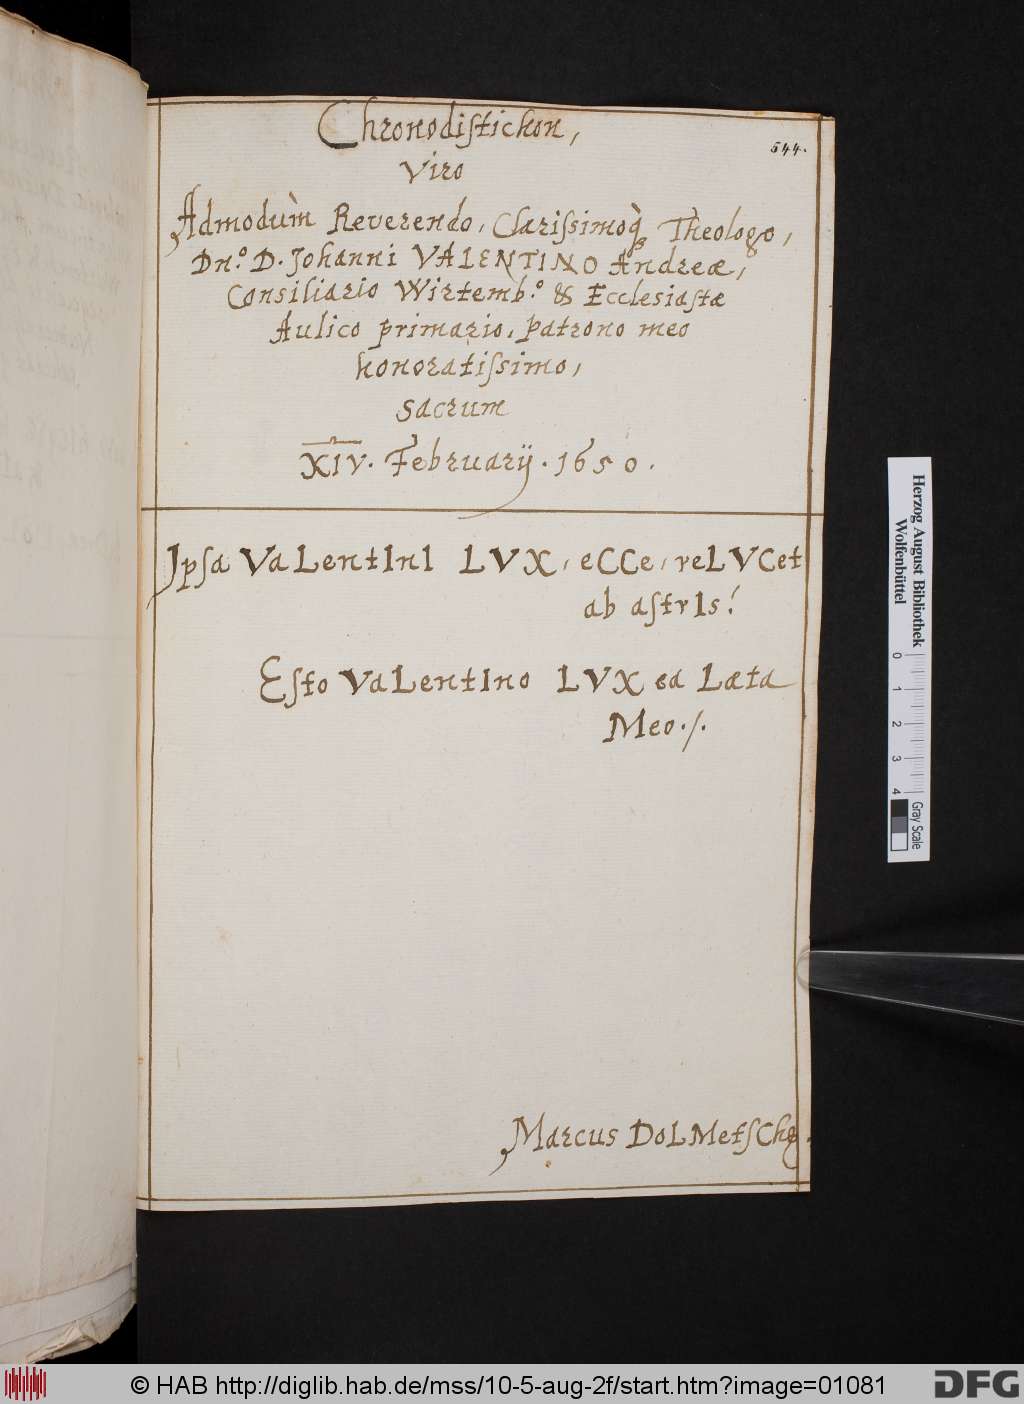 544.
Chronodiſtichon,
Viro
Admodùm Reverendo, Clariſsimoq́ꝫ Theologo,
Dn.º D. Johanni VALENTINO Andreæ,
Consiliario Wirtemb.º & Ecclesiaſtæ
Aulico primario, Patrono meo
honoratiſsimo,
Sacrum
XIV. Februarÿ. 1650.
Jpſa VaLentInI LVX, eCCe, reLVCet
ab aſtrIs!
Eſto VaLentIno LVX ea Læta
Meo./.
Marcus DoLMetſChꝫ.
Herzog August Bibliothek
Wolfenbüttel
0 1 2 3 4
Gray Scale
© HAB http://diglib.hab.de/mss/10-5-aug-2f/start.htm?image=01081
DFG